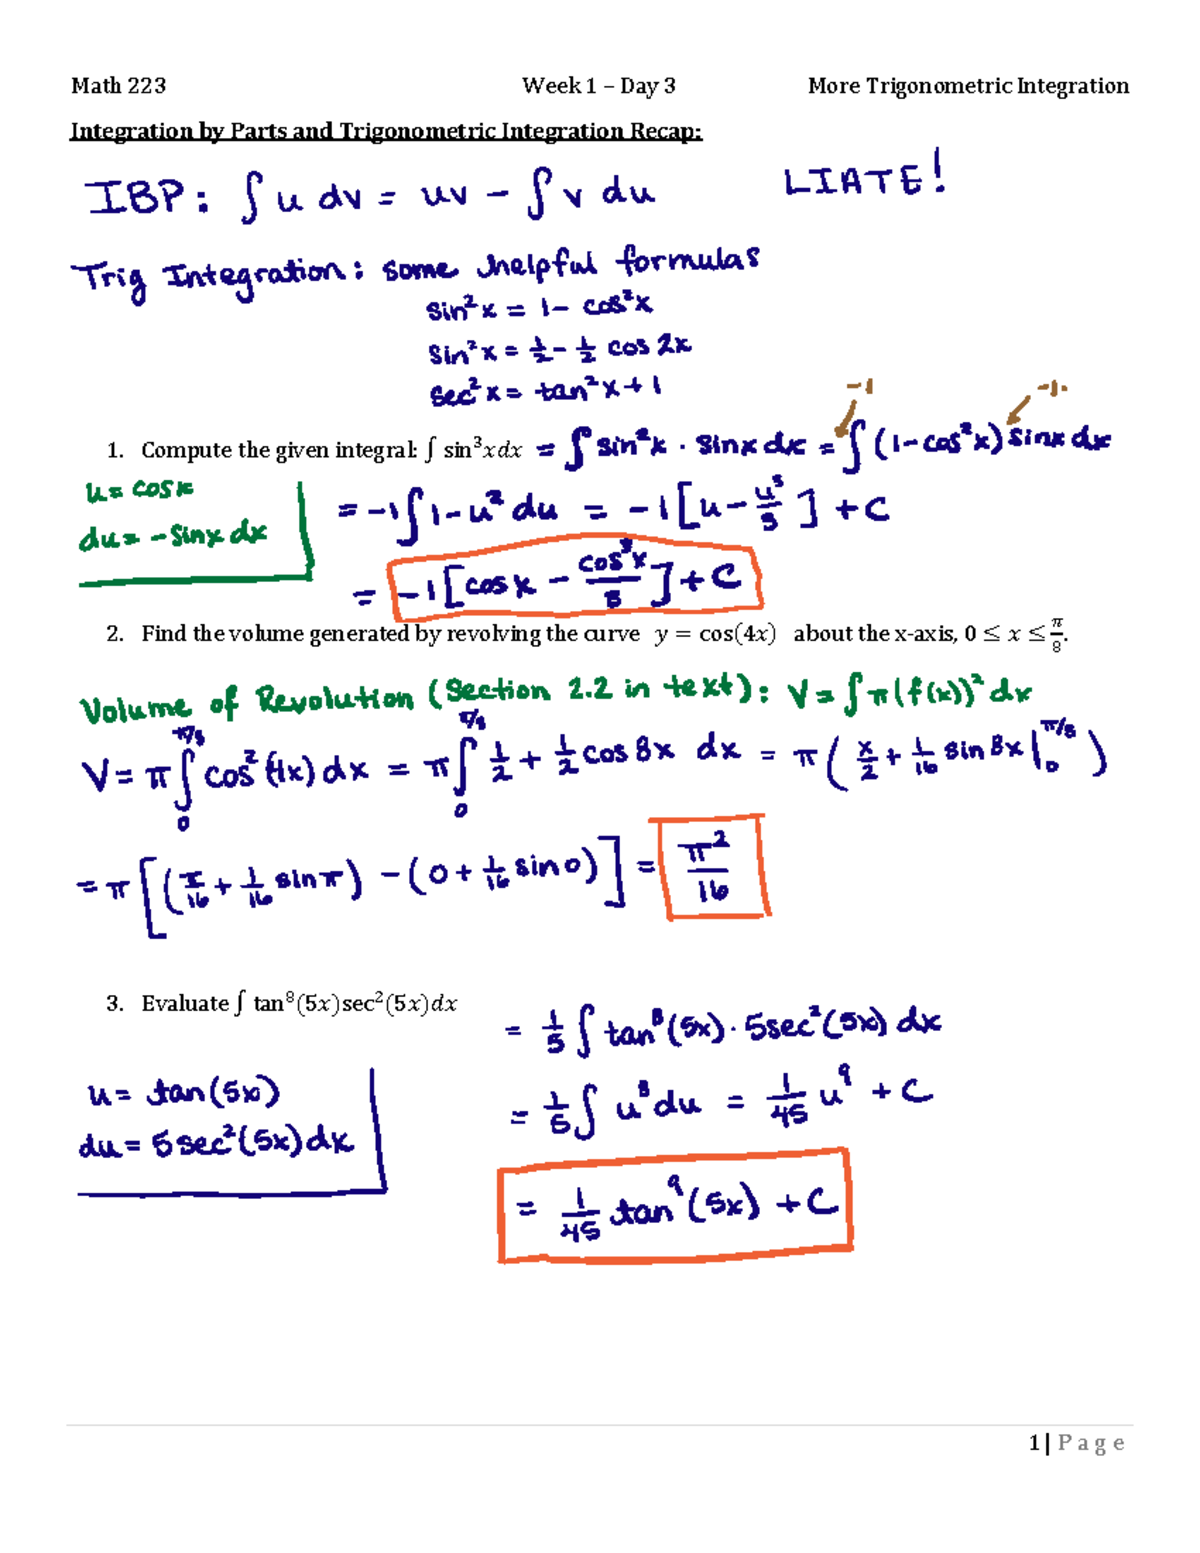 Math 223 Week 1 – Day 3 More Trigonometric Integration
Integration by Parts and Trigonometric Integration Recap:
IBP: ∫ u dv = uv − ∫ v du LIATE!
Trig Integration: some helpful formulas
sin²x = 1 − cos²x
sin²x = 1/2 − 1/2 cos 2x
sec²x = tan²x + 1
−1 −1
1. Compute the given integral: ∫ sin³xdx = ∫ sin²x · sinx dx = ∫ (1−cos²x) sinx dx
u = cosx
du = −sinx dx
= −1∫1−u² du = −1[u − u³/3] + C
= −1[cosx − cos³x/3] + C
2. Find the volume generated by revolving the curve y = cos(4x) about the x-axis, 0 ≤ x ≤ π/8.
Volume of Revolution (Section 2.2 in text): V = ∫ π(f(x))² dx
V = π ∫₀^(π/8) cos²(4x) dx = π ∫₀^(π/8) 1/2 + 1/2 cos 8x dx = π ( x/2 + 1/16 sin 8x |₀^(π/8) )
= π[(π/16 + 1/16 sin π) − (0 + 1/16 sin 0)] = π²/16
3. Evaluate ∫ tan⁸(5x)sec²(5x)dx
= 1/5 ∫ tan⁸(5x) · 5sec²(5x) dx
u = tan(5x)
du = 5 sec²(5x) dx
= 1/5 ∫ u⁸ du = 1/45 u⁹ + C
= 1/45 tan⁹(5x) + C
1 | P a g e